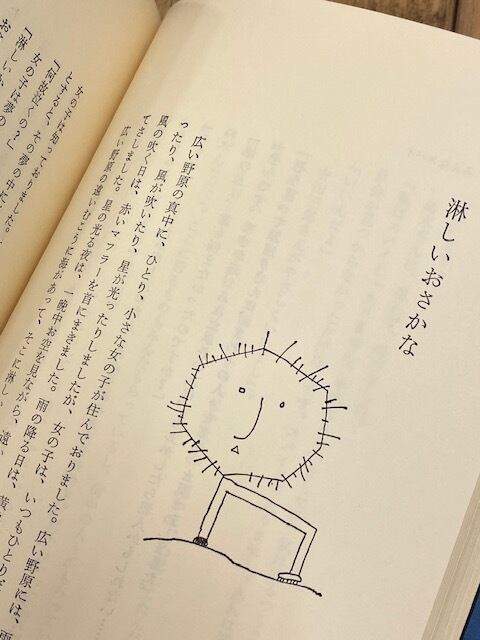 淋しいおさかな
広い野原の真中に、ひとり、小さな女の子が住んでおりました。広い野原には、雨
ったり、風が吹いたり、星が光ったりしましたが、女の子は、いつもひとりだ
風の吹く日は、赤いマフラーを首にまきました。雨の降る日は、黄
てさしました。星の光る夜は、一晩中お空を見ながら、遠い
広い野原の遠いむこうに海があって、そこに淋しい
女の子は知っておりました。
とすると、その夢の中に、
「何故泣くの？」
女の子は夢の
「淋しいか